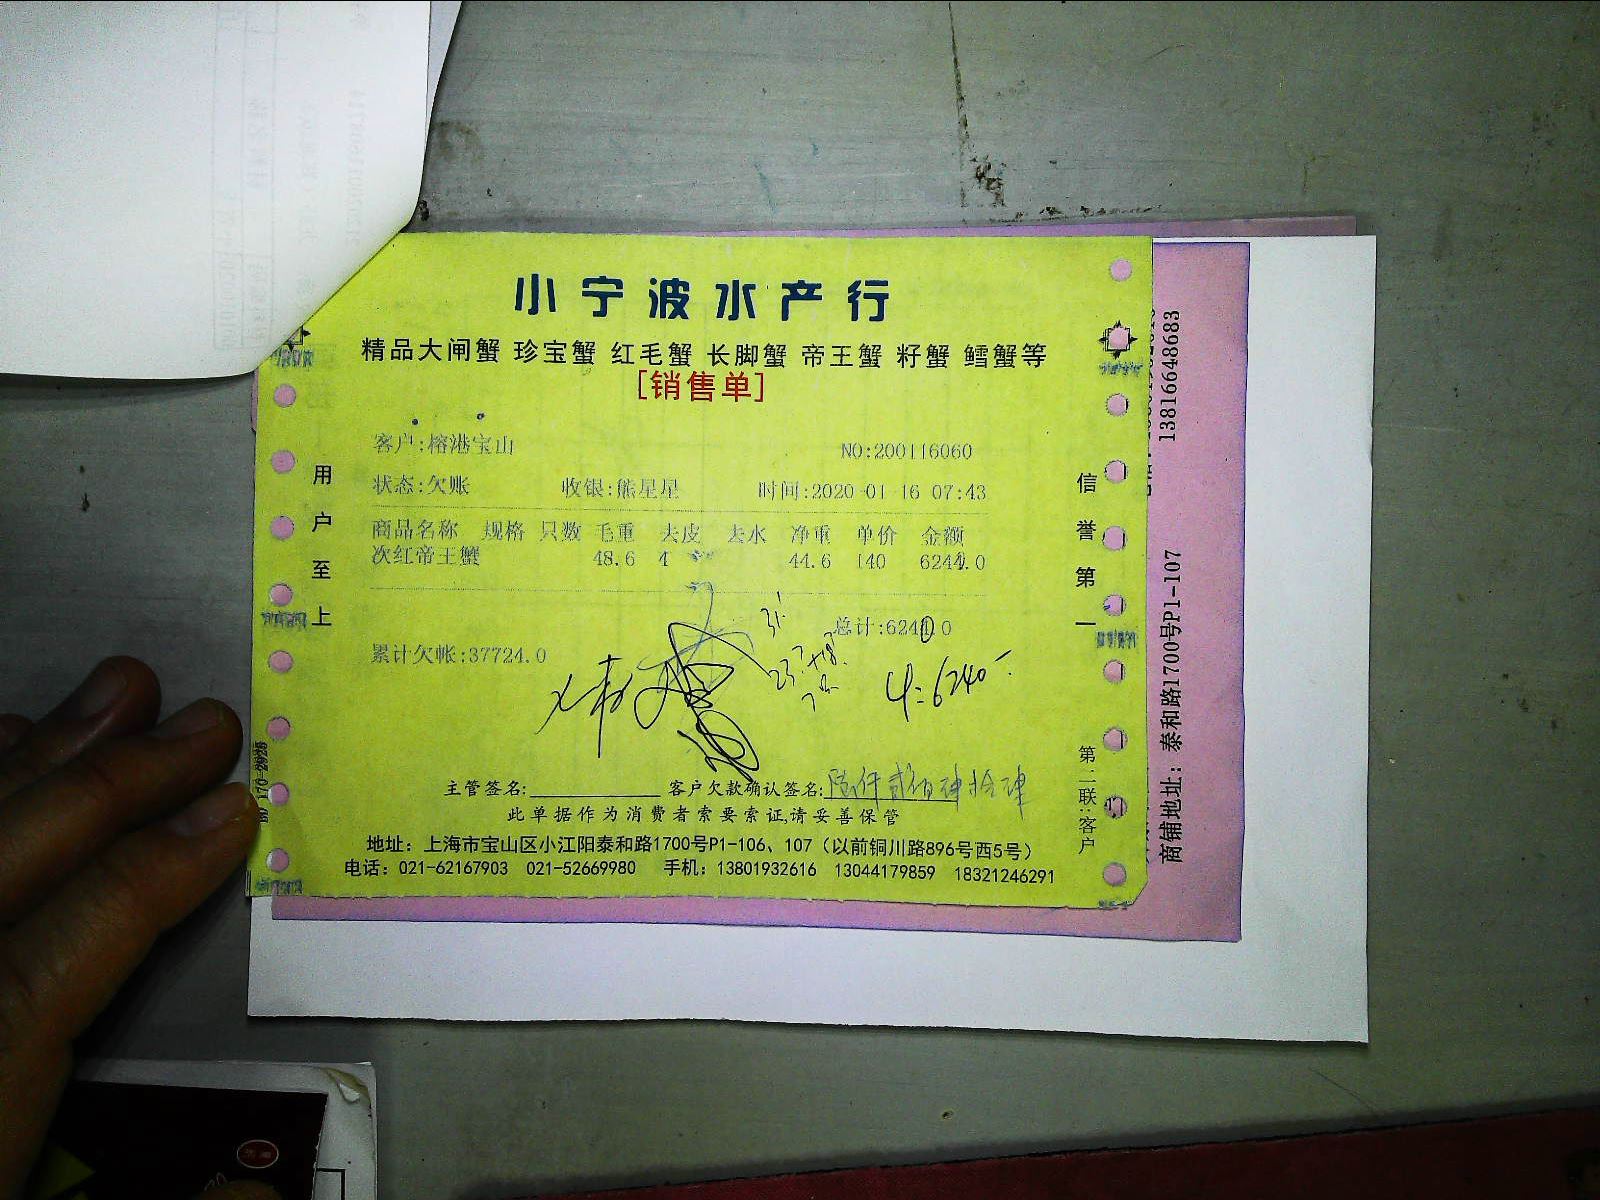 小宁波水产行
精品大闸蟹 珍宝蟹 红毛蟹 长脚蟹 帝王蟹 籽蟹 鳕蟹等
[销售单]
客户:榕港宝山 NO:200116060
状态:欠账 收银:熊星星 时间:2020-01-16 07:43
商品名称 规格 只数 毛重 去皮 去水 净重 单价 金额
次红帝王蟹 48.6 4 44.6 140 6244.0
总计:6244.0
累计欠帐:37724.0
31
6240
主管签名: 客户欠款确认签名:陆仟贰佰肆拾肆
此单据作为消费者索要索证,请妥善保管
地址：上海市宝山区小江阳泰和路1700号P1-106、107（以前铜川路896号西5号）
电话：021-62167903 021-52669980 手机：13801932616 13044179859 18321246291
用户至上
信誉第一
第二联:客户
13816648683
商铺地址：泰和路1700号P1-107